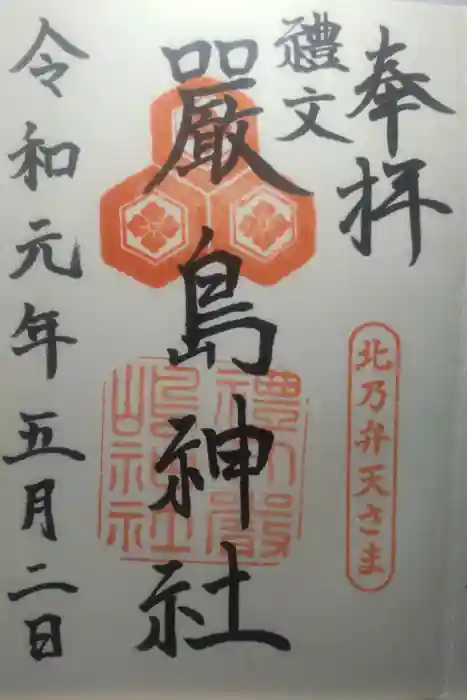 奉拝
北乃弁天さま
禮文
嚴島神社
禮文嚴
島神社
令和元年五月二日